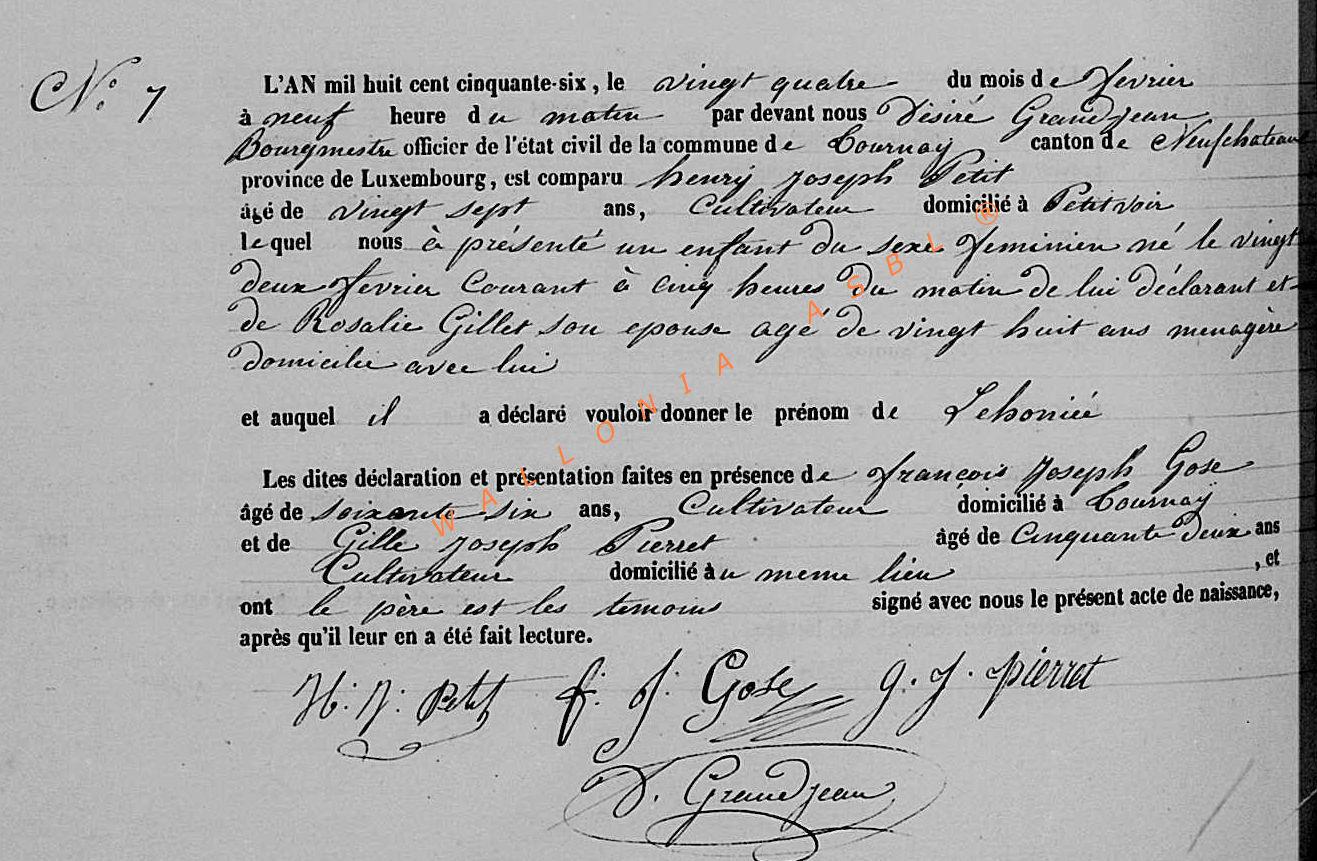 N° 7
L'AN mil huit cent cinquante-six, le vingt quatre du mois de fevrier
à neuf heure du matin par devant nous Désiré Grandjean
Bourgmestre officier de l'état civil de la commune de Tournay canton de Neufchateau
province de Luxembourg, est comparu henry Joseph Petit
âgé de vingt sept ans, Cultivateur domicilié à Petitvoir
lequel nous à présenté un enfant du sexe feminien né le vingt
deux fevrier Courant à cinq heures du matin de lui déclarant et
de Rosalie Gillet son epouse agé de vingt huit ans menagère
domicilie avec lui
et auquel il a déclaré vouloir donner le prénom de
Les dites déclaration et présentation faites en présence de françois Joseph Gose
âgé de soixante six ans, Cultivateur domicilié à Tournay
et de Gille Joseph Pierret âgé de Cinquante deux ans
Cultivateur domicilié au meme lieu , et
ont le père est les temoins signé avec nous le présent acte de naissance,
après qu'il leur en a été fait lecture.
H. J. Petit f. J. Gose g. J. pierret
D. Grandjean
WALLONIA ASBL ®